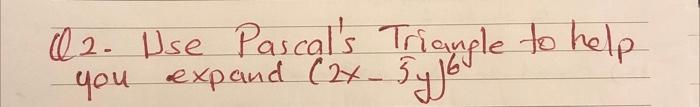 Q2- Use Pascal's Triangle to help
you expand (2x - 5y)⁶